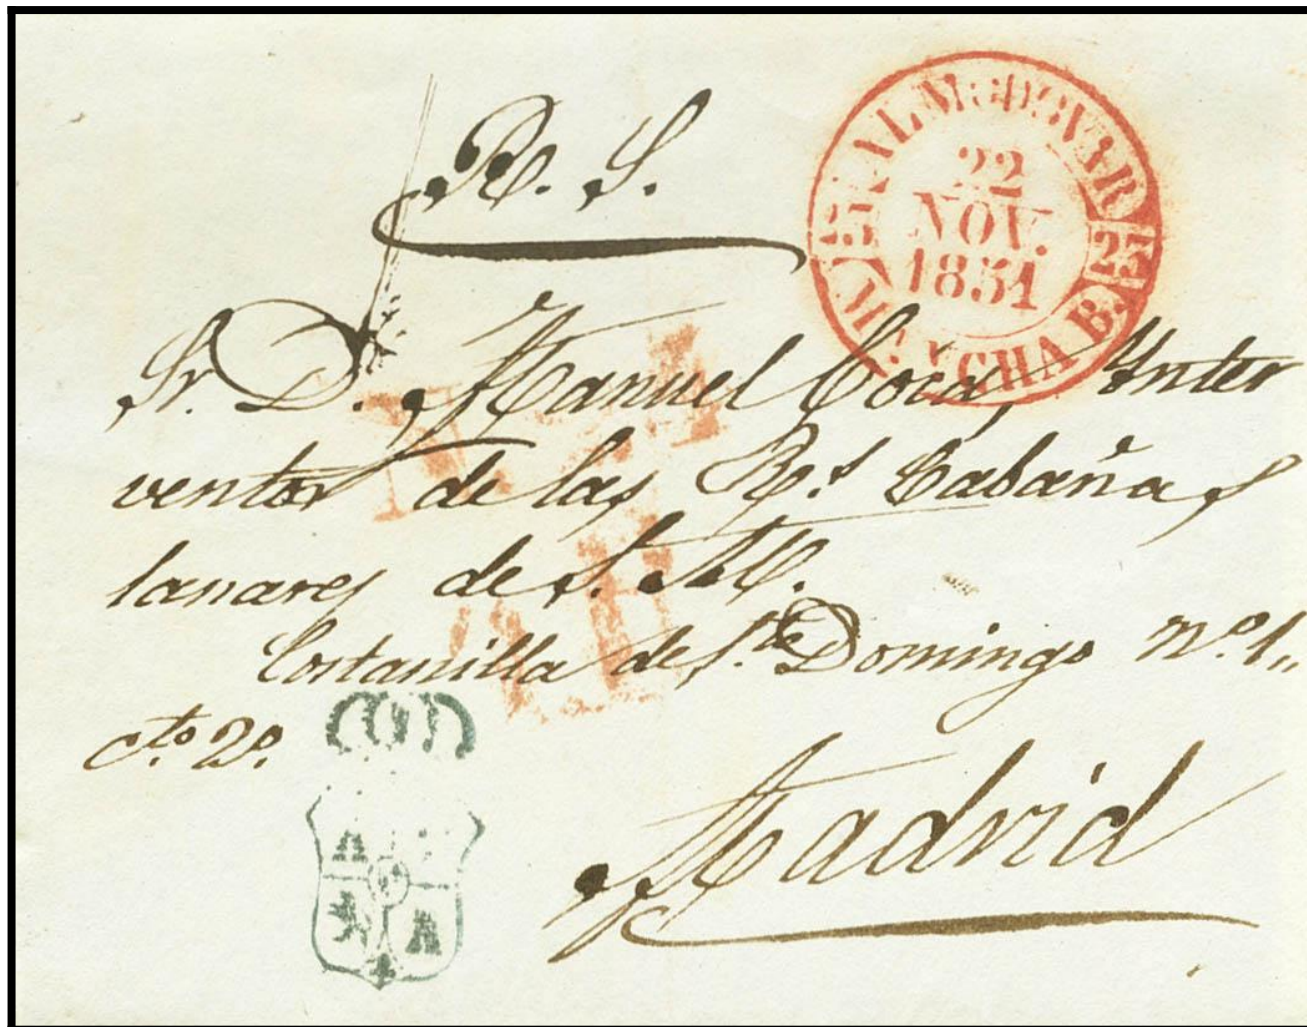 R. S.
ALMODOVAR
22
NOV.
1851
25
MANCHA B.
Sr. D. Manuel Coca, Inter
ventor de las Rs. Cabañas
lanares de S. M.
Costanilla de Sto. Domingo No. 1,,
cto. 2o.
Madrid